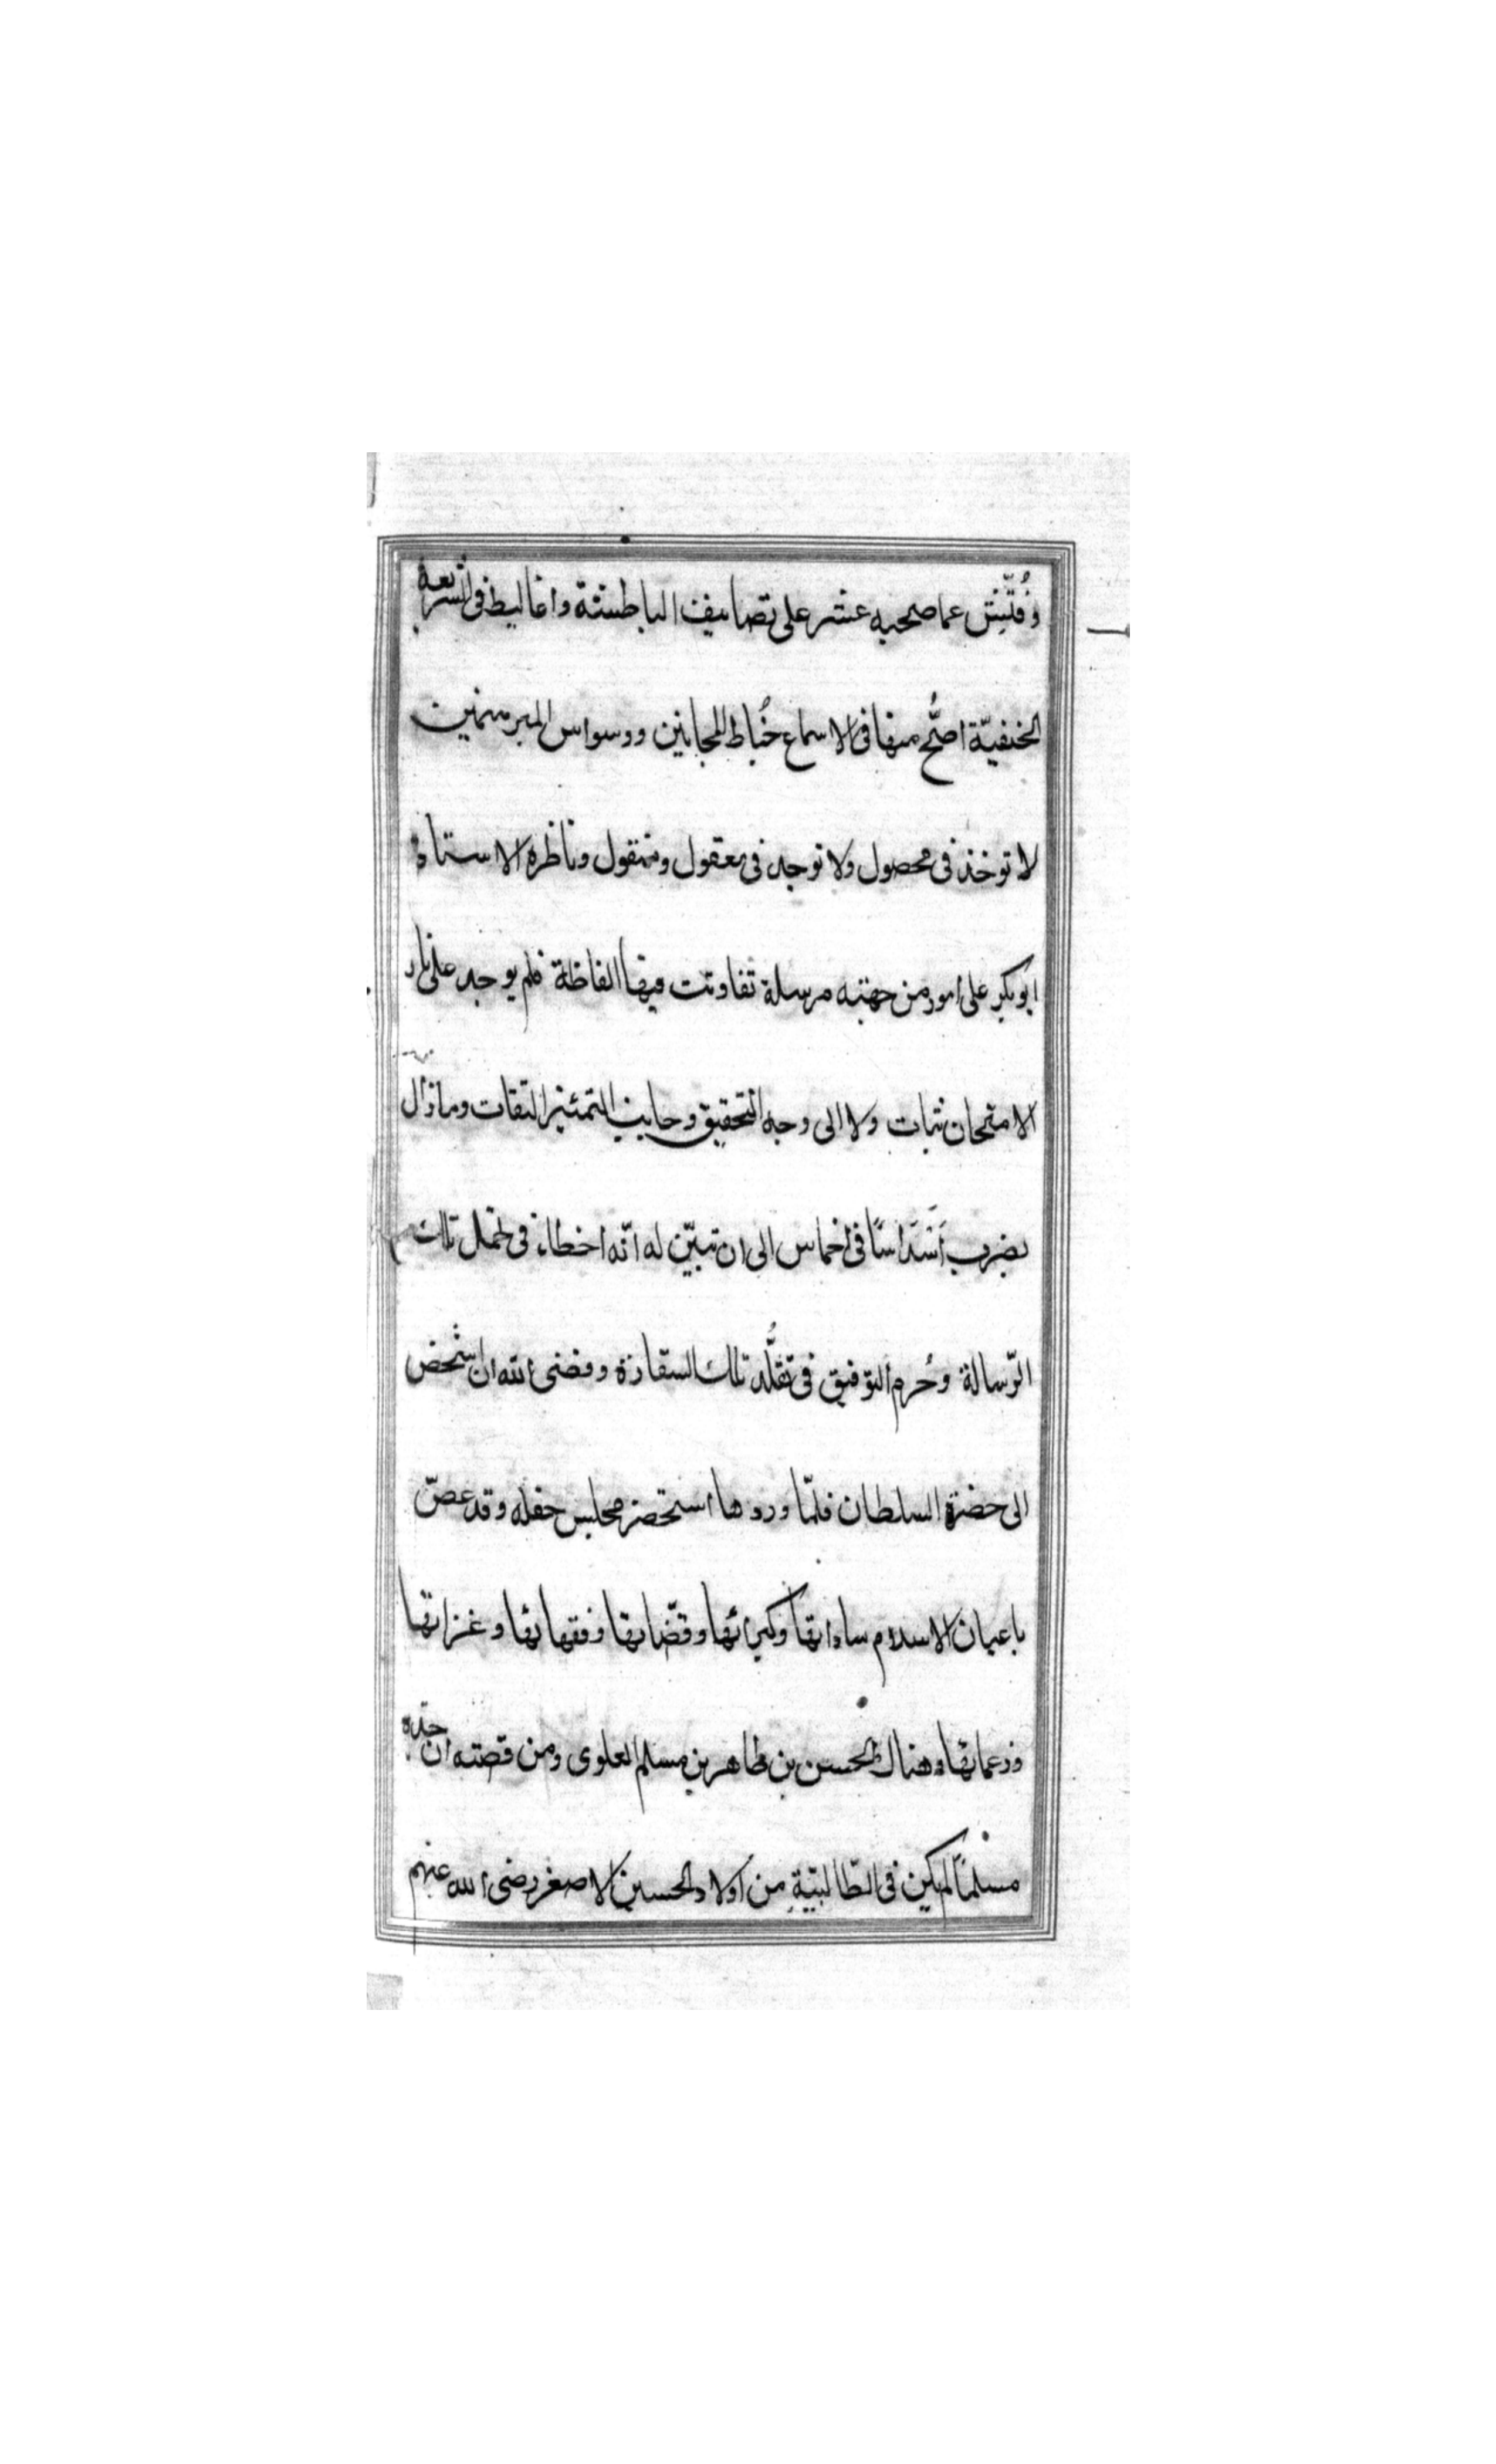 وفُتِّش عما صحبه عشر على تصانيف الباطنية واغاليط فى الشريعة
الحنفيّة اصَّح منها فى الاسماع خُباط المجانين ووسواس المبرسمين
لا توخذ فى محصول ولا توجد فى معقول ومنقول وناظره الاستاذ
ابو بكر على امور من جهته مرسلة تفاوتت فيها الفاظة فلم يوجد على نار
الامتحان ثبات ولا الى وجه التحقيق وجانب التمييز التفات وما زال
يضرب اَسَدَاسًا فى اخماس الى ان تبيّن له انّه اخطاء فى تحمّل تلك
الرّسالة وحُرم التوفيق فى تقلُّد تلك السفارة وقضى الله ان شخص
الى حضرة السلطان فلمّا وردها استحضر مجلس حفله وقد غصّ
باعيان الاسلام ساداتها وكبرائها وقضّاتها وفقهائها وغزاتها
وزعمائها وهناك الحسن بن طاهر بن مسلم العلوى ومن قصته ان جدّه
مسلمًا لم يكن فى الطّالبيّةِ من اولاد الحسين الاصغر رضى الله عنهم